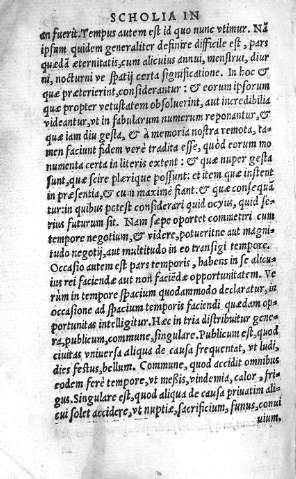 SCHOLIA IN
an fuerit. Tempus autem est id quo nunc vtimur. Nã
ipsum quidem generaliter definire difficile est, pars
quædã æternitatis, cum alicuius annui, menstrui, diur
ni, nocturni ve spatij certa significatione. In hoc &
quæ præterierint, considerantur: & eorum ipsorum
quæ propter vetustatem obsoluerint, aut incredibilia
videantur, vt in fabularum numerum reponantur, &
quæ iam diu gesta, & à memoria nostra remota, ta-
men faciunt fidem verè tradita esse, quòd eorum mo
numenta certa in literis extent: & quæ nuper gesta
sunt, quæ scire plærique possunt: et item quæ instent
in præsentia, & cum maximè fiant: & quæ consequã
tur: in quibus potest considerari quid ocyus, quid se-
rius futurum sit. Nam sæpe oportet commetiri cum
tempore negotium, & videre, potueritne aut magni-
tudo negotij, aut multitudo in eo transigi tempore.
Occasio autem est pars temporis, habens in se alicu-
ius rei faciendæ aut non faciẽdæ opportunitatem. Ve
rùm in tempore spacium quodammodo declaratur, in
occasione ad spacium temporis faciendi quædam op-
portunitas intelligitur. Hæc in tria distribuitur gene-
ra, publicum, commune, singulare. Publicum est, quod
ciuitas vniuersa aliqua de causa frequentat, vt ludi,
dies festus, bellum. Commune, quod accidit omnibus
eodem ferè tempore, vt messis, vindemia, calor, fri-
gus. Singulare est, quod aliqua de causa priuatim ali-
cui solet accidere, vt nuptiæ, sacrificium, funus, conui
uium.